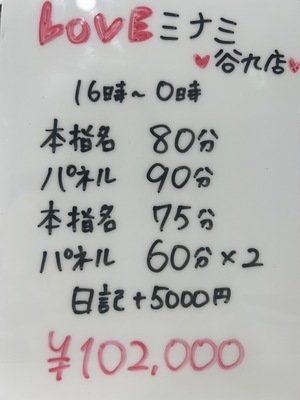 LOVEミナミ
♥谷九店♥
16時〜0時
本指名 80分
パネル 90分
本指名 75分
パネル 60分×2
日記+5000円
¥102,000